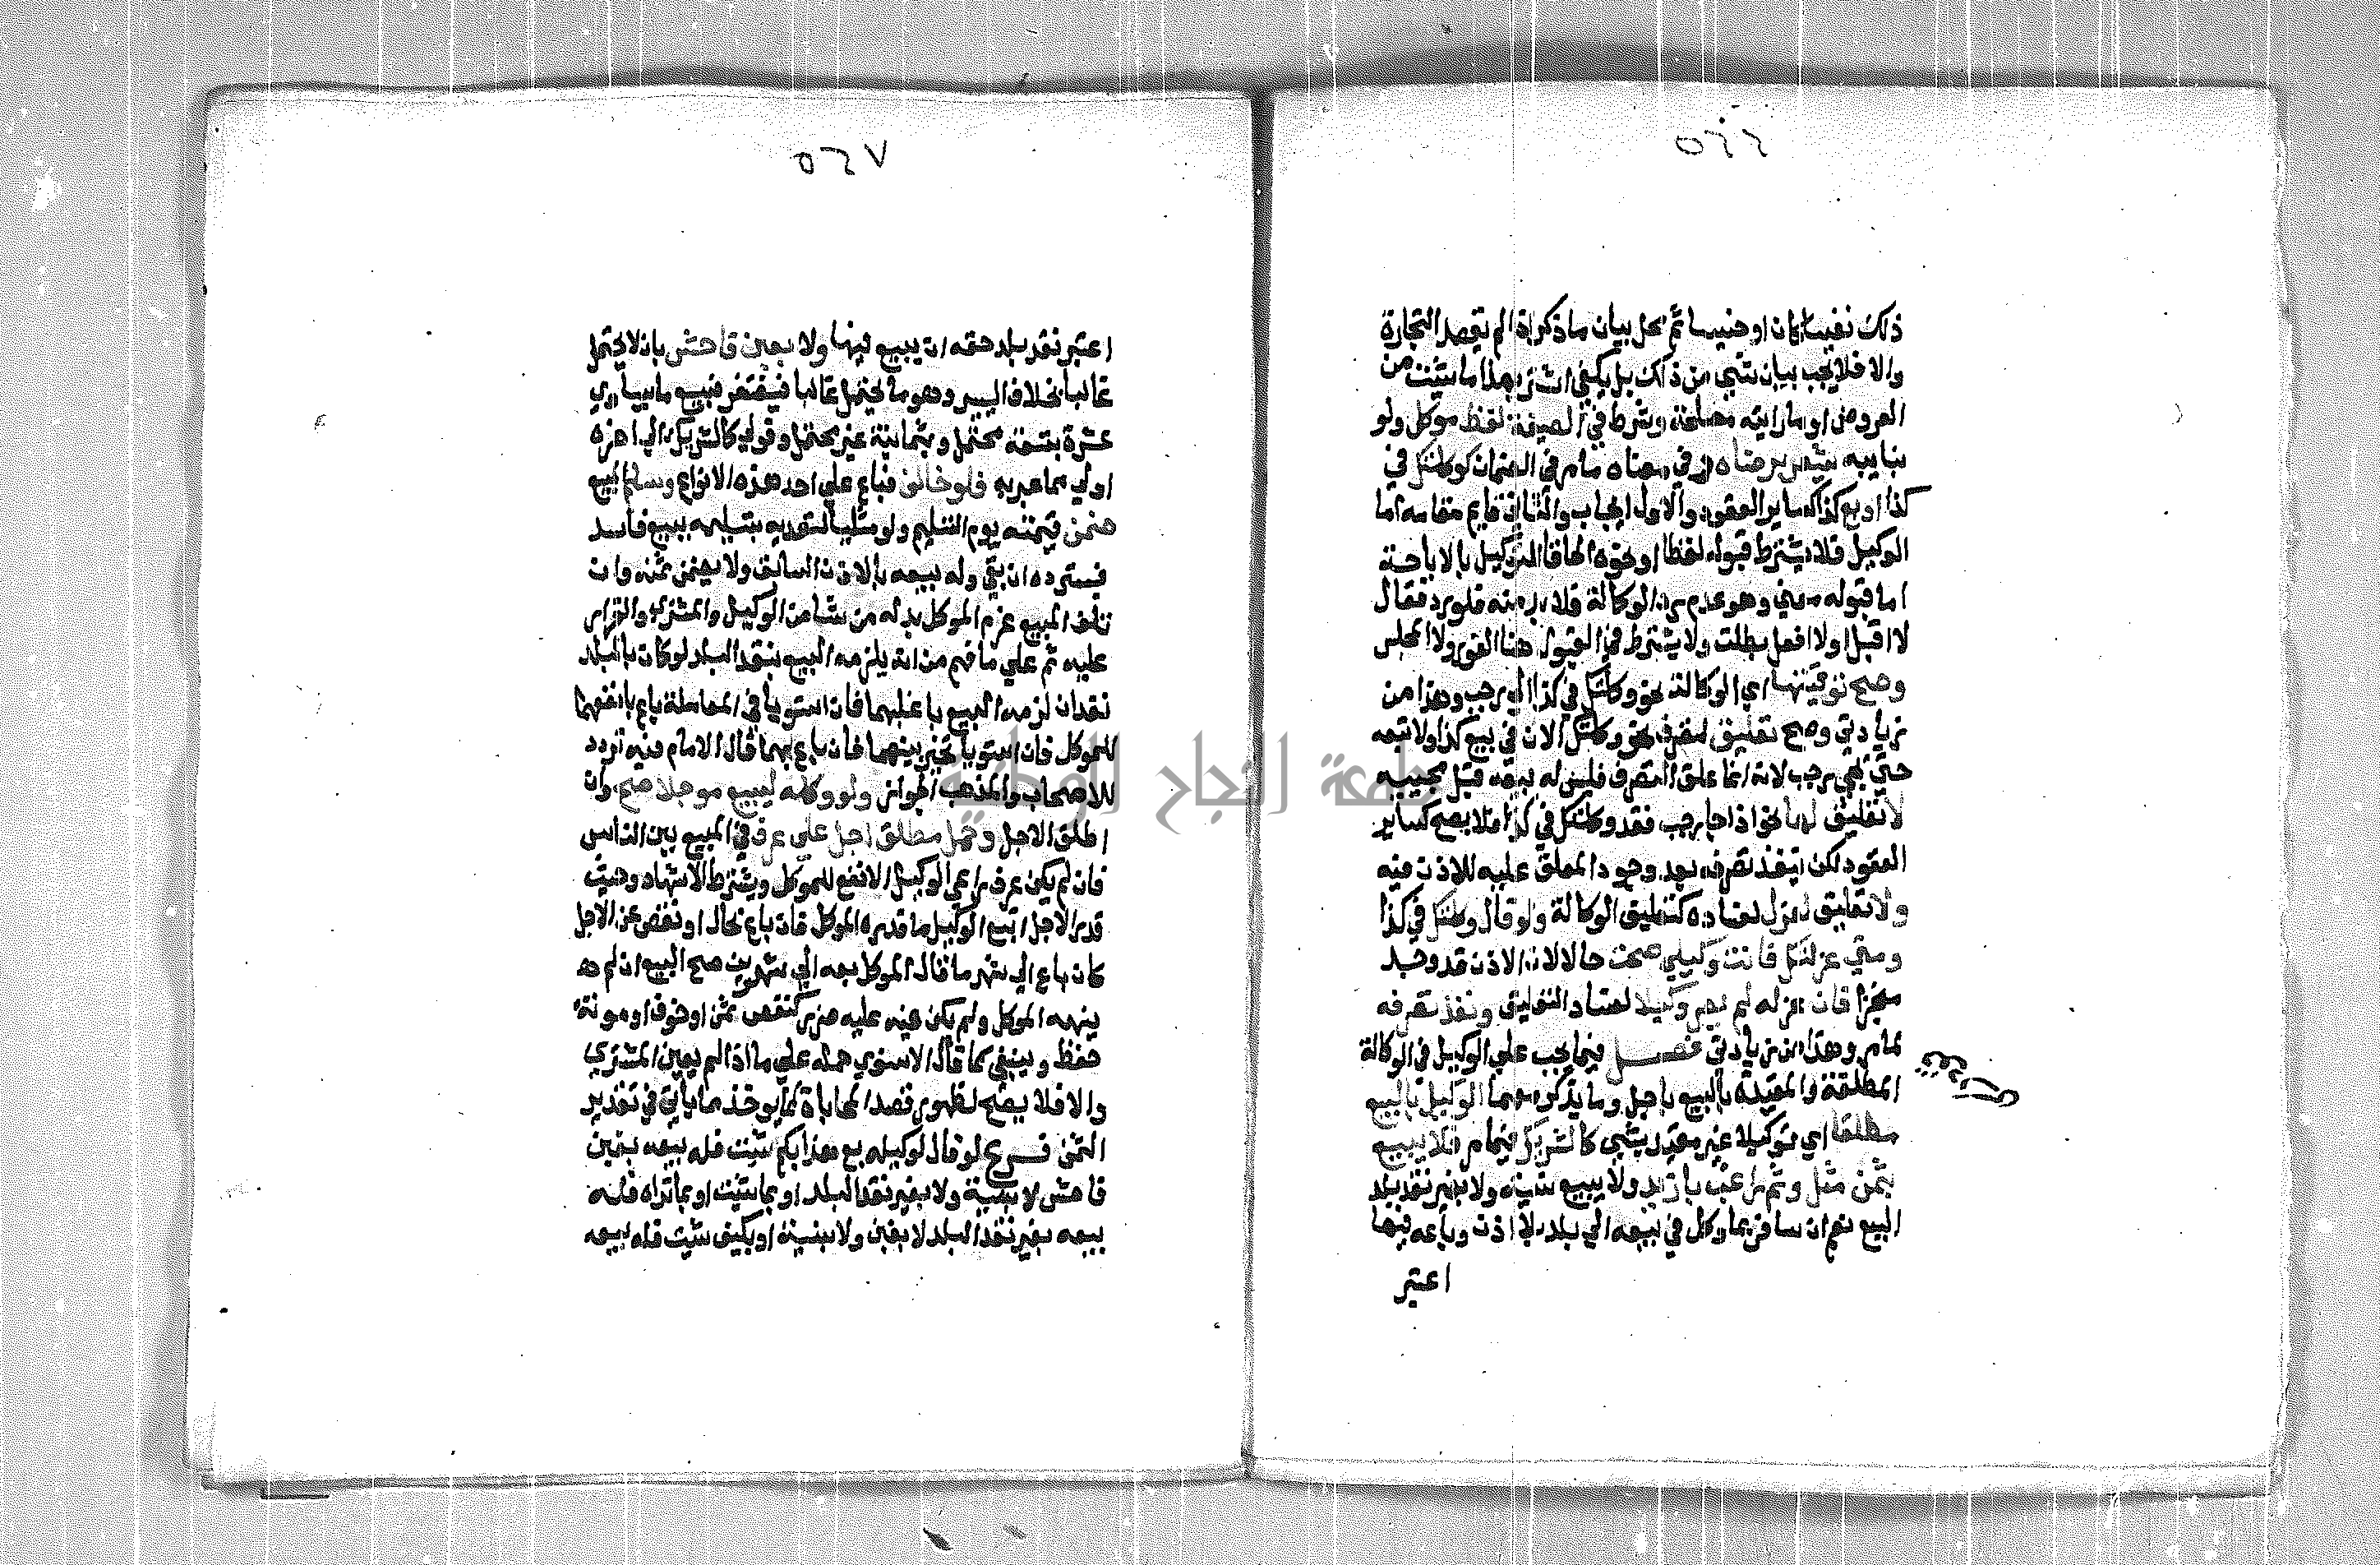 ٥٢٦
ذلك نفيسا كان او خسيسا ثم محل بيان ما ذكر اذا لم يقصد التجارة
والا فلا يجب بيان شي من ذلك بل يكفي اشتر بهذا ما شئت من
العروض او ما رايته مصلحة وشرط في الصيغة لفظ موكل ولو
بنايبه يشعر برضاه وفي معناه ما مر في الضمان كوكلتك في
كذا او بع كذا كساير العقود والاول ايجاب والثاني قايم مقامه اما
الوكيل فلا يشترط قبوله لفظا او نحوه الحاقا للتوكيل بالاباحة
اما قبوله معني وهو عدم رد الوكالة فلا بد منه فلو رد فقال
لا اقبل او لا افعل بطلت ولا يشترط في القبول هنا الفور ولا المجلس
وصح توقيتها اي الوكالة نحو وكلتك في كذا الي رجب وهذا من
زيادتي وصح تعليق لتصرف نحو وكلتك الان في بيع كذا ولا تبعه
حتي يجي رجب لانه انما علق التصرف فليس له بيعه قبل مجيبه
لا تعليق لها نحو اذا جا رجب فقد وكلتك في كذا فلا يصح كساير
العقود لكن ينفذ تصرفه بعد وجود المعلق عليه للاذن فيه
ولا تعليق لعزل لفساده كتعليق الوكالة ولو قال وكلتك في كذا
ومتي عزلتك فانت وكيلي صحت حالا لان الاذن قد وجد
منجزا فان عزله لم يصر وكيلا لفساد التعليق ونفذ تصرفه
لما مر وهذا من زيادتي فصل فيما يجب علي الوكيل في الوكالة
المطلقة والمقيدة بالبيع باجل وما يذكر معهما الوكيل بالبيع
مطلقا اي توكيلا غير مقيد بشي كالشريك فيما مر فلا يبيع
بثمن مثل وثم راغب بازيد ولا يبيع نسيئة ولا بغير نقد بلد
البيع نعم ان سافر بما وكل في بيعه الي بلد بلا اذن وباعه فيها
اعتبر
٥٢٧
اعتبر نقد بلد حقه ان يبيع فيها ولا بغبن فاحش بان لا يحتمل
غالبا بخلاف اليسير وهو ما يحتمل غالبا فيغتفر فبيع ما يساوي
عشرة بتسعة محتمل وبثمانية غير محتمل وقولي كالشريك الي اخره
اولي مما عبر به فلو خالف فباع علي احد هذه الانواع وسلم المبيع
ضمن قيمته يوم التسليم ولو مثليا لتعديه بتسليمه ببيع فاسد
فيسترده ان بقي وله بيعه بالاذن السابق ولا يضمن ثمنه وان
تلف المبيع غرم الموكل بدله من شا من الوكيل والمشتري والقرار
عليه ثم علي ما فهم من انه يلزمه البيع بنقد البلد لو كان بالبلد
نقدان لزمه البيع باغلبهما فان استويا في المعاملة باع بانفعهما
للموكل فان استويا تخير بينهما فان باع بهما قال الامام فيه تردد
للاصحاب والمذهب الجواز ولو وكله ليبيع موجلا صح وان
اطلق الاجل وحمل مطلق اجل علي عرف في المبيع بين الناس
فان لم يكن عرف راعي الوكيل الانفع للموكل ويشترط الاشهاد وحيث
قدر الاجل اتبع الوكيل ما قدره الموكل فان باع بحال او نقص عن الاجل
كان باع الي شهر ما قال الموكل بعه الي شهرين صح البيع ان لم
ينهه الموكل ولم يكن فيه عليه ضرر كنقص ثمن او خوف او مونة
حفظ وينبغي كما قال الاسنوي حمله علي ما اذا لم يعين المشتري
والا فلا يصح لظهور قصد المحاباة كما يوخذ مما ياتي في تقدير
الثمن فرع لو قال لوكيله بع هذا بكم شئت فله بيعه بغبن
فاحش لا بنسيئة ولا بغير نقد البلد او بما شئت او بما تراه فله
بيعه بغير نقد البلد لا بغبن ولا بنسيئة او بكيف شئت فله بيعه
مطبعة النجاح الوطنية